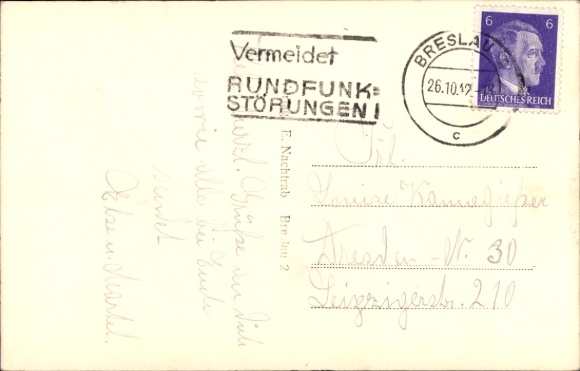 Vermeidet
RUNDFUNK=
STÖRUNGEN!
BRESLAU
26.10.42
c
6 6
DEUTSCHES REICH
E. Nachtrab Breslau 2
Frl.
Louise Kannegießer
Dresden-N. 30
Leipzigerstr. 210
Herzl. Grüße an Dich
sowie alle bei Euch
sendet
Else u.